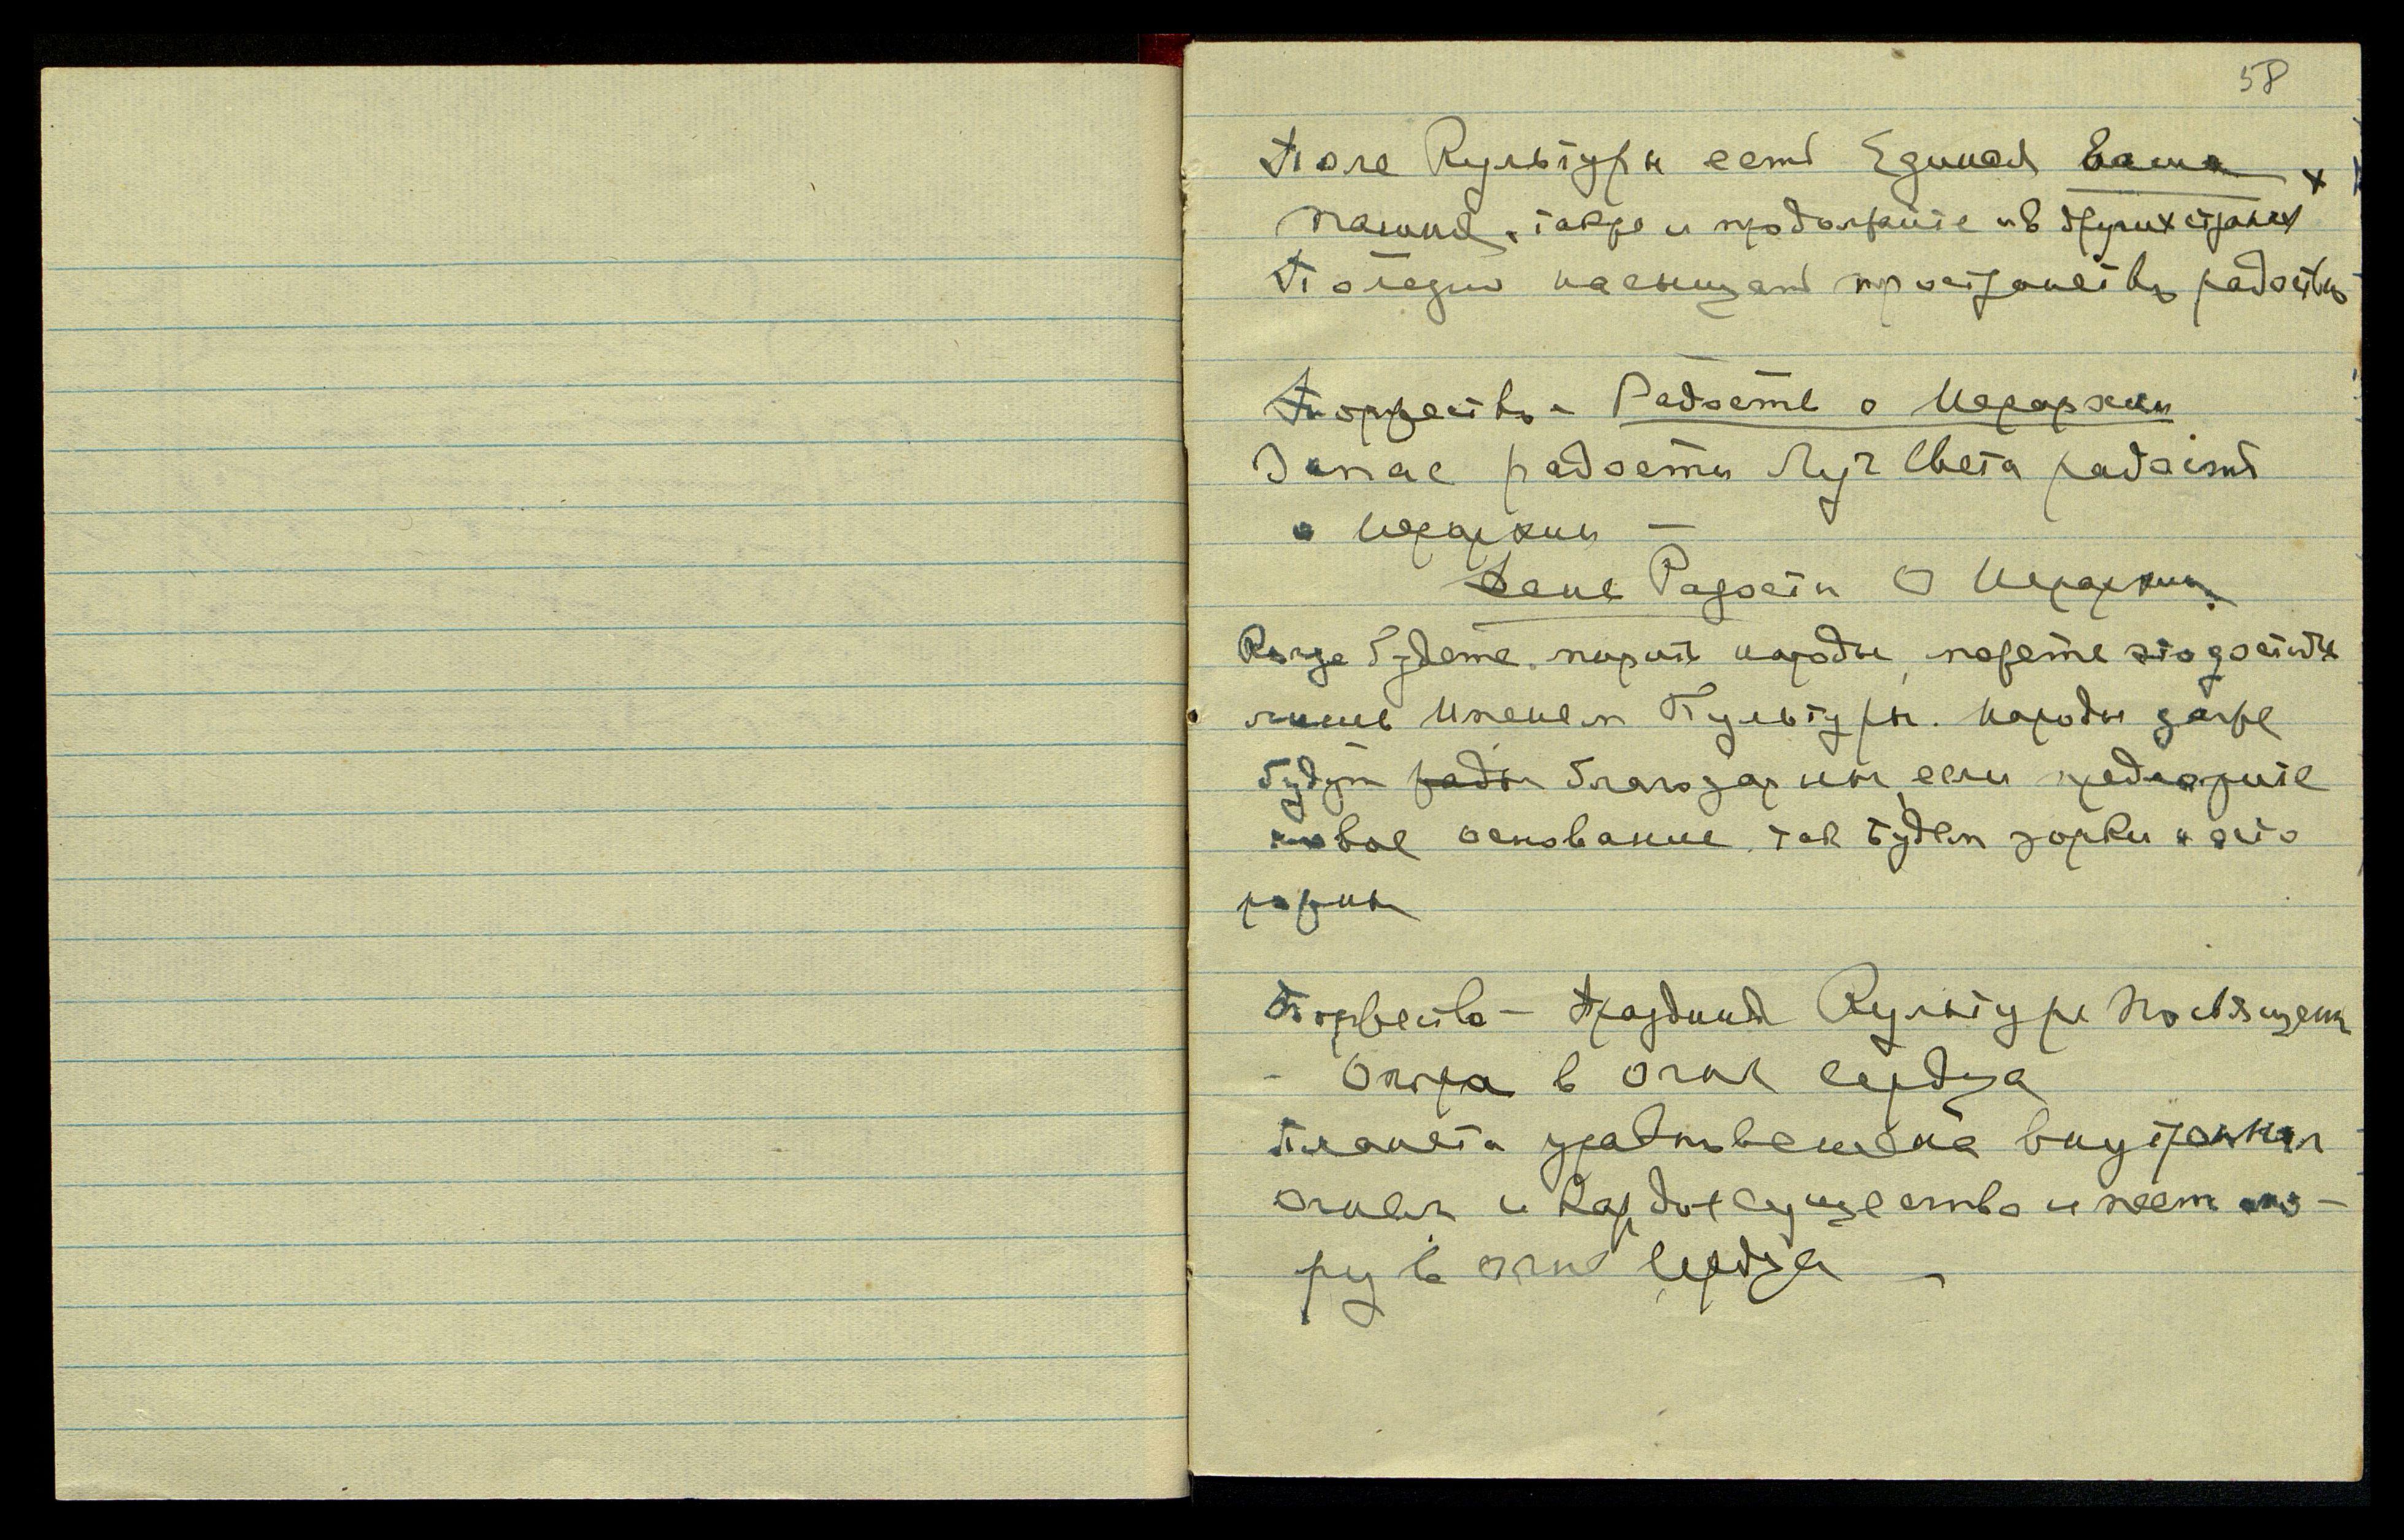 58
Поле Культуры есть Единая Ваша
пашня. также и продолжайте и в других странах
Победно насыщать пространство радостью
Торжество - Радость о Иерархии
Запас радости Луч Света радость
о Иерархии —
Радости О Иерархии
Когда будете мирить народы, можете это достичь
лишь Именем Культуры. Народы даже
будут рады благодарны, если предложите
новое основание, так будем зорки и осто
рожны
Торжество - Праздник Культуре Посвящен
- Опора в Огне сердца
Планета уравновешена внутренним
огнем и каждое существо имеет опо-
ру в огне сердца —